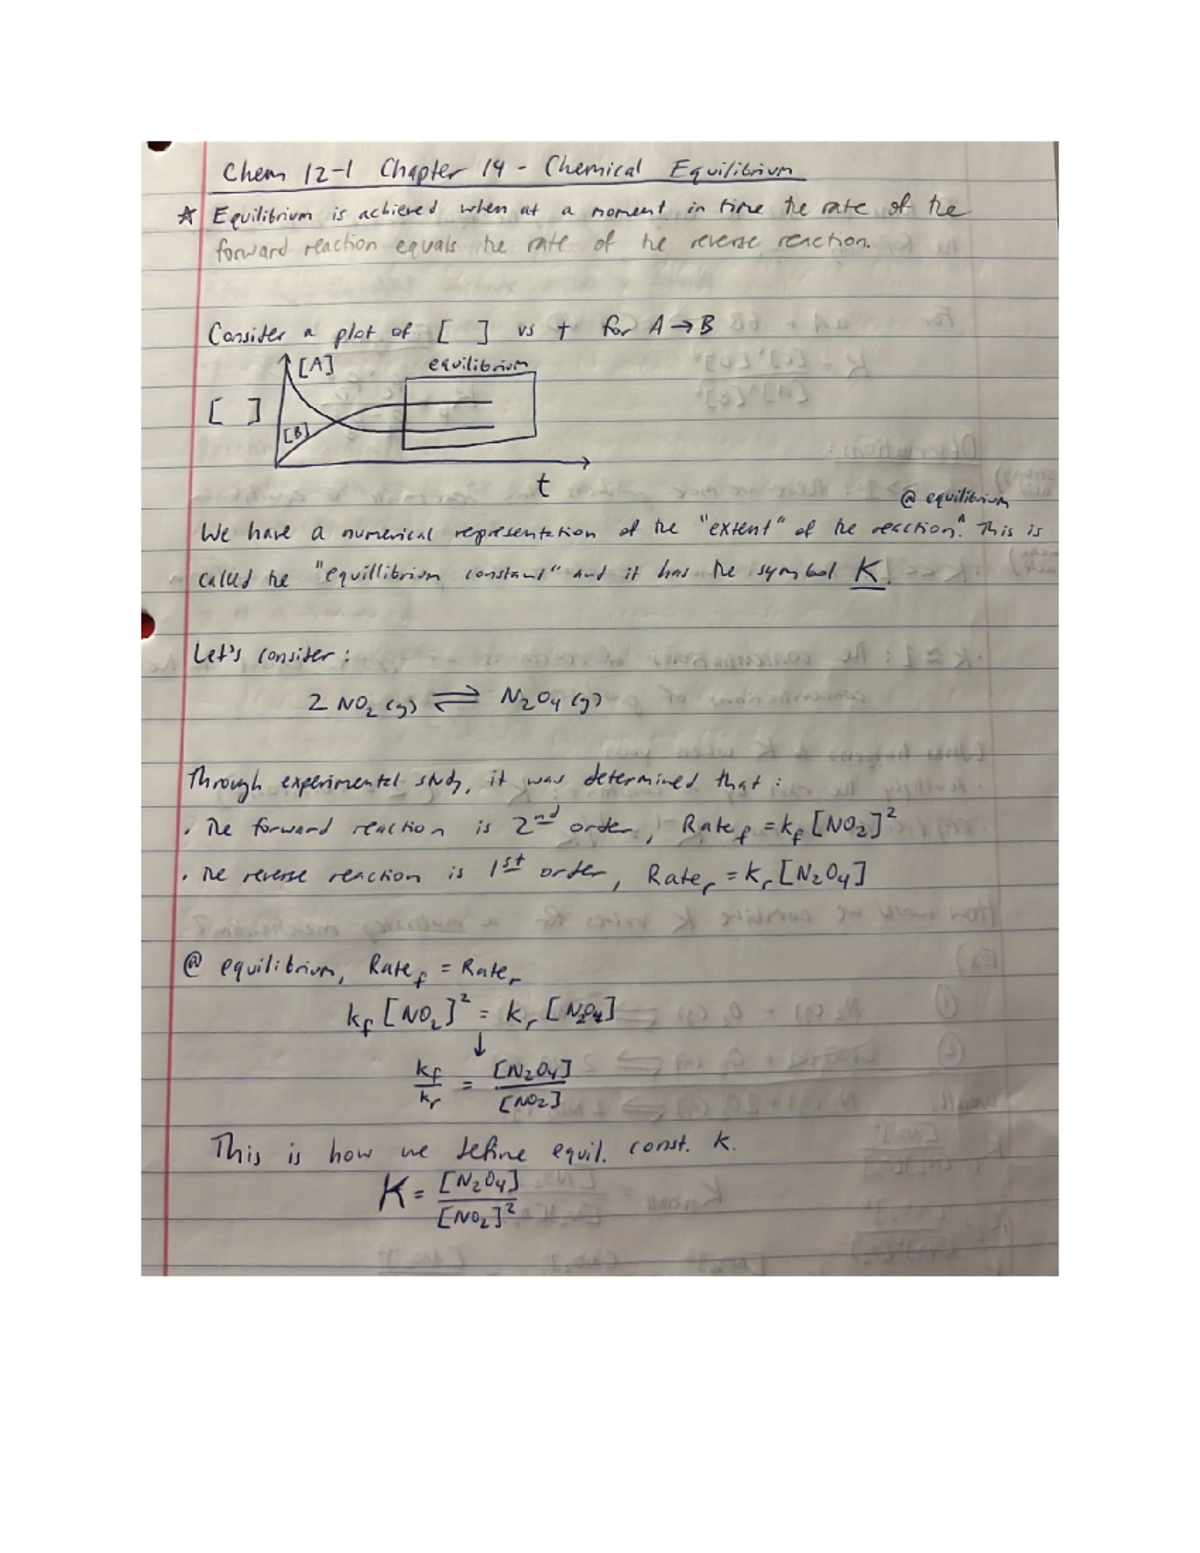 Chem 12-1 Chapter 14 - Chemical Equilibrium
☆ Equilibrium is achieved when at a moment in time the rate of the
forward reaction equals the rate of the reverse reaction.
Consider a plot of [ ] vs t for A → B
[A]
equilibrium
[ ]
[B]
t
@ equilibrium
We have a numerical representation of the "extent" of the reaction^. This is
called the "equillibrium constant" and it has the symbol K.
Let's consider:
2 NO₂ (g) ⇌ N₂O₄ (g)
Through experimental study, it was determined that:
· The forward reaction is 2nd order, Rate_f = k_f [NO₂]²
· The reverse reaction is 1st order, Rate_r = k_r [N₂O₄]
@ equilibrium, Rate_f = Rate_r
k_f [NO₂]² = k_r [N₂O₄]
↓
k_f/k_r = [N₂O₄]/[NO₂]
This is how we define equil. const. K.
K = [N₂O₄]/[NO₂]²